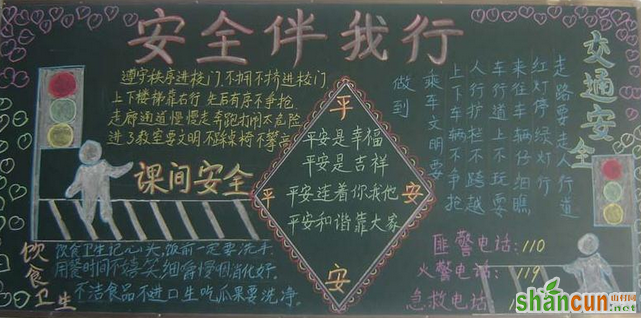 安全伴我行
遵守秩序进校门,不拥不挤进校门
上下楼梯靠右行 先后有序不争抢
走廊通道慢慢走 奔跑打闹太危险
进了教室要文明 不踩桌椅不攀高
课间安全
平
安
平
安
平安是幸福
平安是吉祥
平安连着你我他
平安和谐靠大家
交通安全
走路要走人行道
红灯停绿灯行
来往车辆仔细瞧
车行道上不玩耍
人行护栏不跨越
上下车辆不争抢
乘车文明要
做到
匪警电话: 110
火警电话: 119
急救电话:
饮食卫生
饮食卫生记心头,饭前一定要洗手.
用餐时间不嬉笑 细嚼慢咽消化好.
不洁食品不进口 生吃瓜果要洗净.
shancun